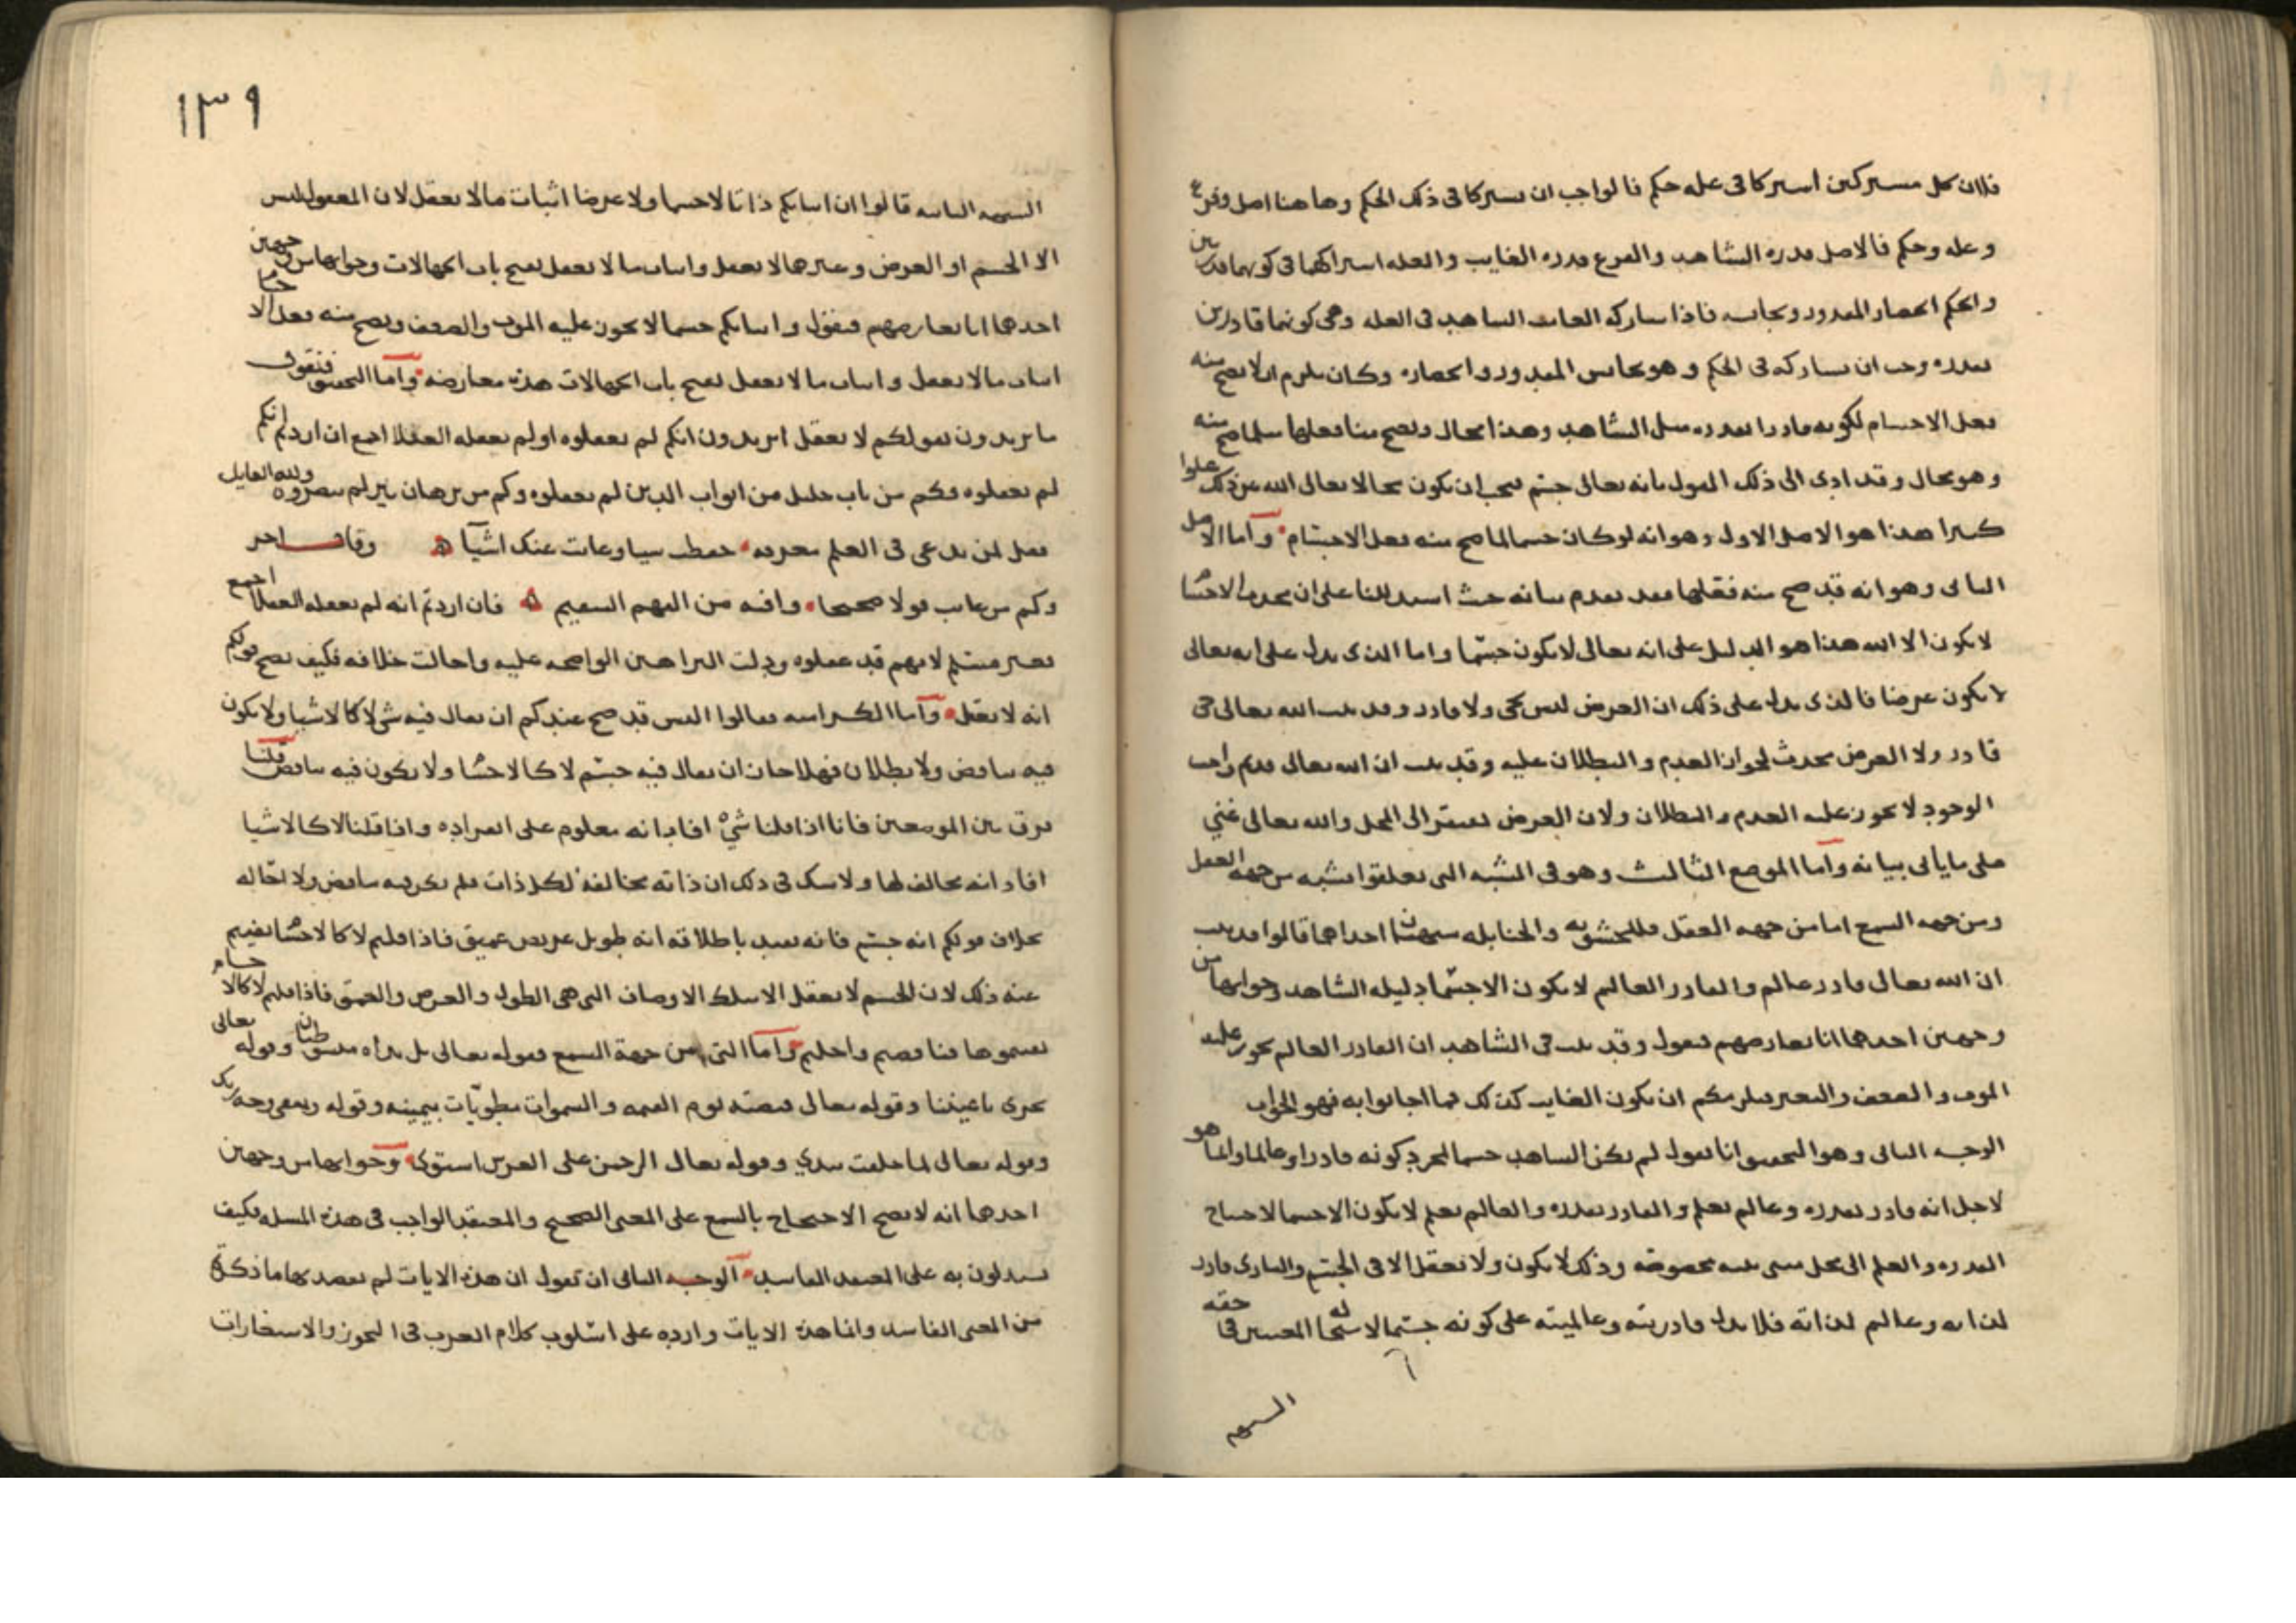 فلان كل مشتركين اشتركا فى عله حكم فالواجب ان يشتركا فى ذلك الحكم وهاهنا اصل وفرع
وعله وحكم فالاصل قدره الشاهد والفرع قدره الغايب والعله اشتراكهما فى كونهما قدرتين
والحكم انحصار المقدور وتجانسه فاذا شاركه الغايب الشاهد فى العله وهى كونهما قادرين
بقدره وجب ان يشاركه فى الحكم وهو تجانس المقدور وانحصاره وكان يلزم ان لا يصح منه
فعل الاجسام لكونه قادرا بقدره مثل الشاهد وهذا محال ويصح منا فعلها مثلما صح منه
وهو محال وقد ادى الى ذلك القول بانه تعالى جسم فيجب ان يكون محالا تعالى الله عن ذلك علوا
كبيرا هذا هو الاصل الاول وهو انه لو كان جسما لما صح منه فعل الاجسام واما الاصل
الثانى وهو انه قد صح منه فعلها فقد تقدم بيانه حيث استدللنا على ان محدث الاجسام
لا يكون الا الله هذا هو الدليل على انه تعالى لا يكون جسما واما الذى يدل على انه تعالى
لا يكون عرضا فالذى يدل على ذلك ان العرض ليس بحى ولا قادر وقد ثبت ان الله تعالى حى
قادر ولان العرض محدث لجواز العدم والبطلان عليه وقد ثبت ان الله تعالى قديم واجب
الوجود لا يجوز عليه العدم والبطلان ولان العرض يفتقر الى المحل والله تعالى غني
على ما يأتى بيانه واما الموضع الثالث وهو فى الشبه التى تعلقوا بشبه من جهه العقل
ومن جهه السمع اما من جهه العقل فللحشويه والحنابله شبهتان احداهما قالوا قد ثبت
ان الله تعالى قادر عالم والقادر العالم لا يكون الا جسما دليله الشاهد وجوابها من
وجهين احدهما انا نعارضهم فنقول وقد ثبت فى الشاهد ان القادر العالم يجوز عليه
الموت والضعف والتغير فيلزمكم ان يكون الغايب كذلك فما اجابوا به فهو الجواب
الوجه الثانى وهو التحقيق انا نقول لم يكن الشاهد جسما لمجرد كونه قادرا وعالما وانما هو
لاجل انه قادر بقدره وعالم بعلم والقادر بقدره والعالم بعلم لا يكون الا جسما لاحتياج
القدره والعلم الى محل مبنى بنيه مخصوصه وذلك لا يكون ولا يعقل الا فى الجسم والبارى قادر
لذاته وعالم لذاته فلا يدل قادريته وعالميته على كونه جسما لاستحاله المعنيين فى حقه
الشبهه
١٣٩
الشبهه الثانيه قالوا ان اثباتكم ذاتا لا جسما ولا عرضا اثبات ما لا يعقل لان المعقول ليس
الا الجسم او العرض وغيرهما لا يعقل واثبات ما لا يعقل يفتح باب الجهالات وجوابها من وجهين
احدهما انا نعارضهم فنقول واثباتكم جسما لا يجوز عليه الموت والضعف ويصح منه فعل الاجسام
اثبات ما لا يعقل واثبات ما لا يعقل يفتح باب الجهالات هذه معارضه واما التحقيق فنقول
ما تريدون بقولكم لا يعقل اتريدون انكم لم تعقلوه او لم يعقله العقلا اجمع ان اردتم انكم
لم تعقلوه فكم من باب جليل من ابواب الدين لم تعقلوه وكم من برهان نير لم تبصروه ولله القايل
فقل لمن يدعى فى العلم معرفه حفظت شيا وغابت عنك اشيآ وقال اخر
وكم من عايب قولا صحيحا وافته من الفهم السقيم فان اردتم انه لم يعقله العقلا اجمع
فغير مسلم لانهم قد عقلوه ودلت البراهين الواضحه عليه واحالت خلافه فكيف يصح قولكم
انه لا يعقل واما الكراميه فقالوا اليس قد صح عندكم ان يقال فيه شى لا كالاشيا ولا يكون
فيه تناقض ولا بطلان فهلا جاز ان يقال فيه جسم لا كالاجسام ولا يكون فيه تناقض قلنا
فرق بين الموضعين فانا اذا قلنا شيْ افاد انه معلوم على انفراده واذا قلنا لا كالاشيا
افاد انه مخالف لها ولا شك فى ذلك ان ذاته مخالفه لكل ذات فلم يكن فيه تناقض ولا احاله
بخلاف قولكم انه جسم فانه يفيد باطلاقه انه طويل عريض عميق فاذا قلتم لا كالاجسام نفيتم
عنه ذلك لان الجسم لا يعقل الا بتلك الاوصاف التى هى الطول والعرض والعمق فاذا قلتم لا كالاجسام
نفيتموها فناقضتم واحلتم واما التى من جهة السمع فقوله تعالى بل يداه مبسوطتان وقوله تعالى
تجرى باعيننا وقوله تعالى قبضته يوم القيمه والسموات مطويّات بيمينه وقوله ويبقى وجه ربك
وقوله تعالى لما خلقت بيدي وقوله تعالى الرحمن على العرش استوى وجوابها من وجهين
احدهما انه لا يصح الاحتجاج بالسمع على المعنى الصحيح والمعتقد الواجب فى هذه المسله فكيف
يستدلون به على المعتقد الفاسد الوجه الثانى ان نقول ان هذه الايات لم يقصد بها ما ذكرتم
من المعنى الفاسد وانما هذه الايات وارده على اسلوب كلام العرب فى التجوز والاستعارات